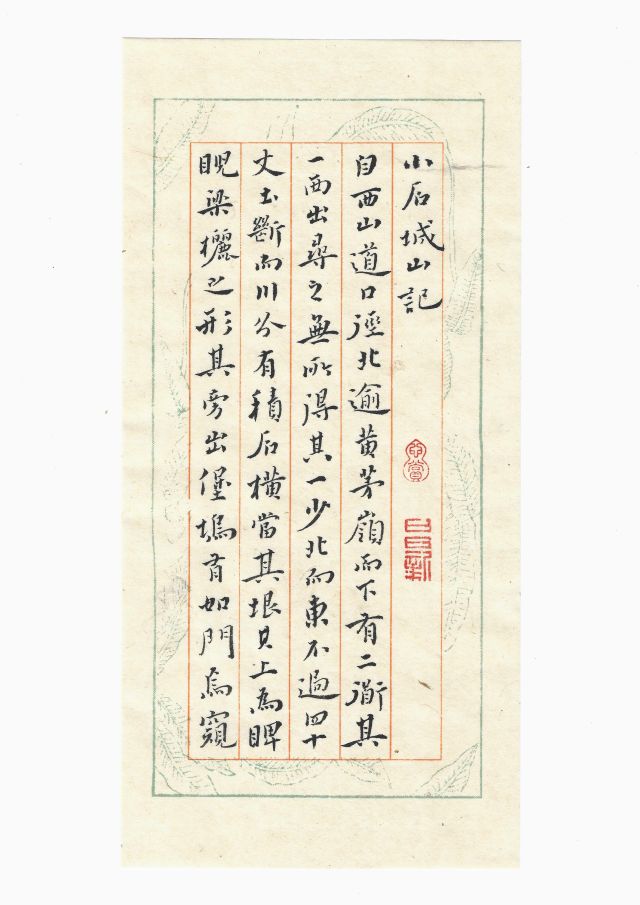 小石城山記
自西山道口徑北逾黃茅嶺而下有二衜其
一西出尋之無所得其一少北而東不過四十
丈土斷而川分有積石橫當其垠其上為睥
睨梁欐之形其旁出堡塢有如門焉窺
日日新